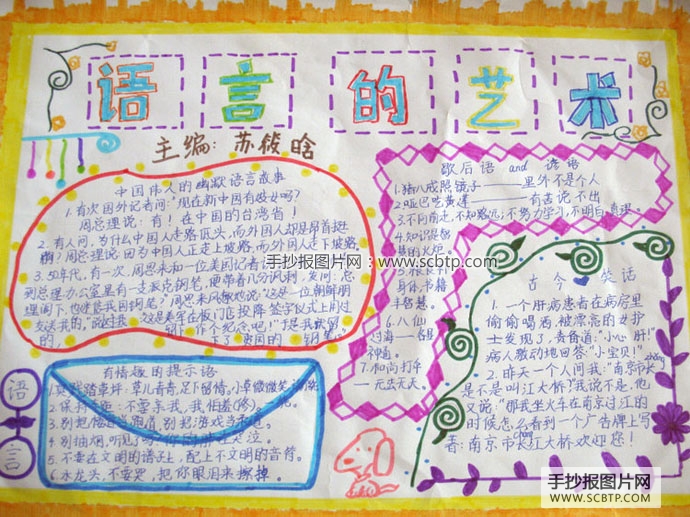 语言的艺术
主编：苏筱晗
中国伟人的幽默语言故事
1.有次国外记者问："现在新中国有妓女吗？
周总理说：有！在中国的台湾省！
2.有人问，为什么中国人走路低头，而外国人却是昂首挺
胸？周总理说：因为中国人正走上坡路，而外国人走下坡路。
3.50年代，有一次，周恩来和一位美国记者
到总理办公室里有一支派克钢笔，便带着几分讽刺，发问：总
理阁下，也迷信我国钢笔？周恩来风趣地说："这是一位朝鲜朋
友送我的，这是美军在板门店投降签字仪式上用过
的，作个纪念吧！"于是我就留
下了贵国的钢笔。
歇后语 and 谚语
1.猪八戒照镜子——里外不是人
2.哑巴吃黄连——有苦说不出
3.不向前走，不知路远，不努力学习，不明白真理。
4.知识是
身体，书籍
6.八仙
过海——各显
神通。
7.和尚打伞
——无法无天。
古今笑话
1.一个肝病患者在病房里
偷偷喝酒，被漂亮的女护
士发现了，责备道："小心肝！"
病人激动地回答："小宝贝！"
2.昨天一个人问我："南京市长
zhǎng
是不是叫江大桥？"我说不是，他
又说："那我坐火车在南京过江的
时候怎么看到一个广告牌上写
cháng
着：南京市长江大桥欢迎您！
有情趣的提示语
草儿青青，足下留情，小草微微笑
4.别抽烟，
5.不要在文明的谱子上，配上不文明的音符。
6.水龙头，不要哭，把你眼泪来擦掉。
语
言
手抄报图片网：
www.scbtp.com
手抄报图片网
WWW.SCBTP.COM